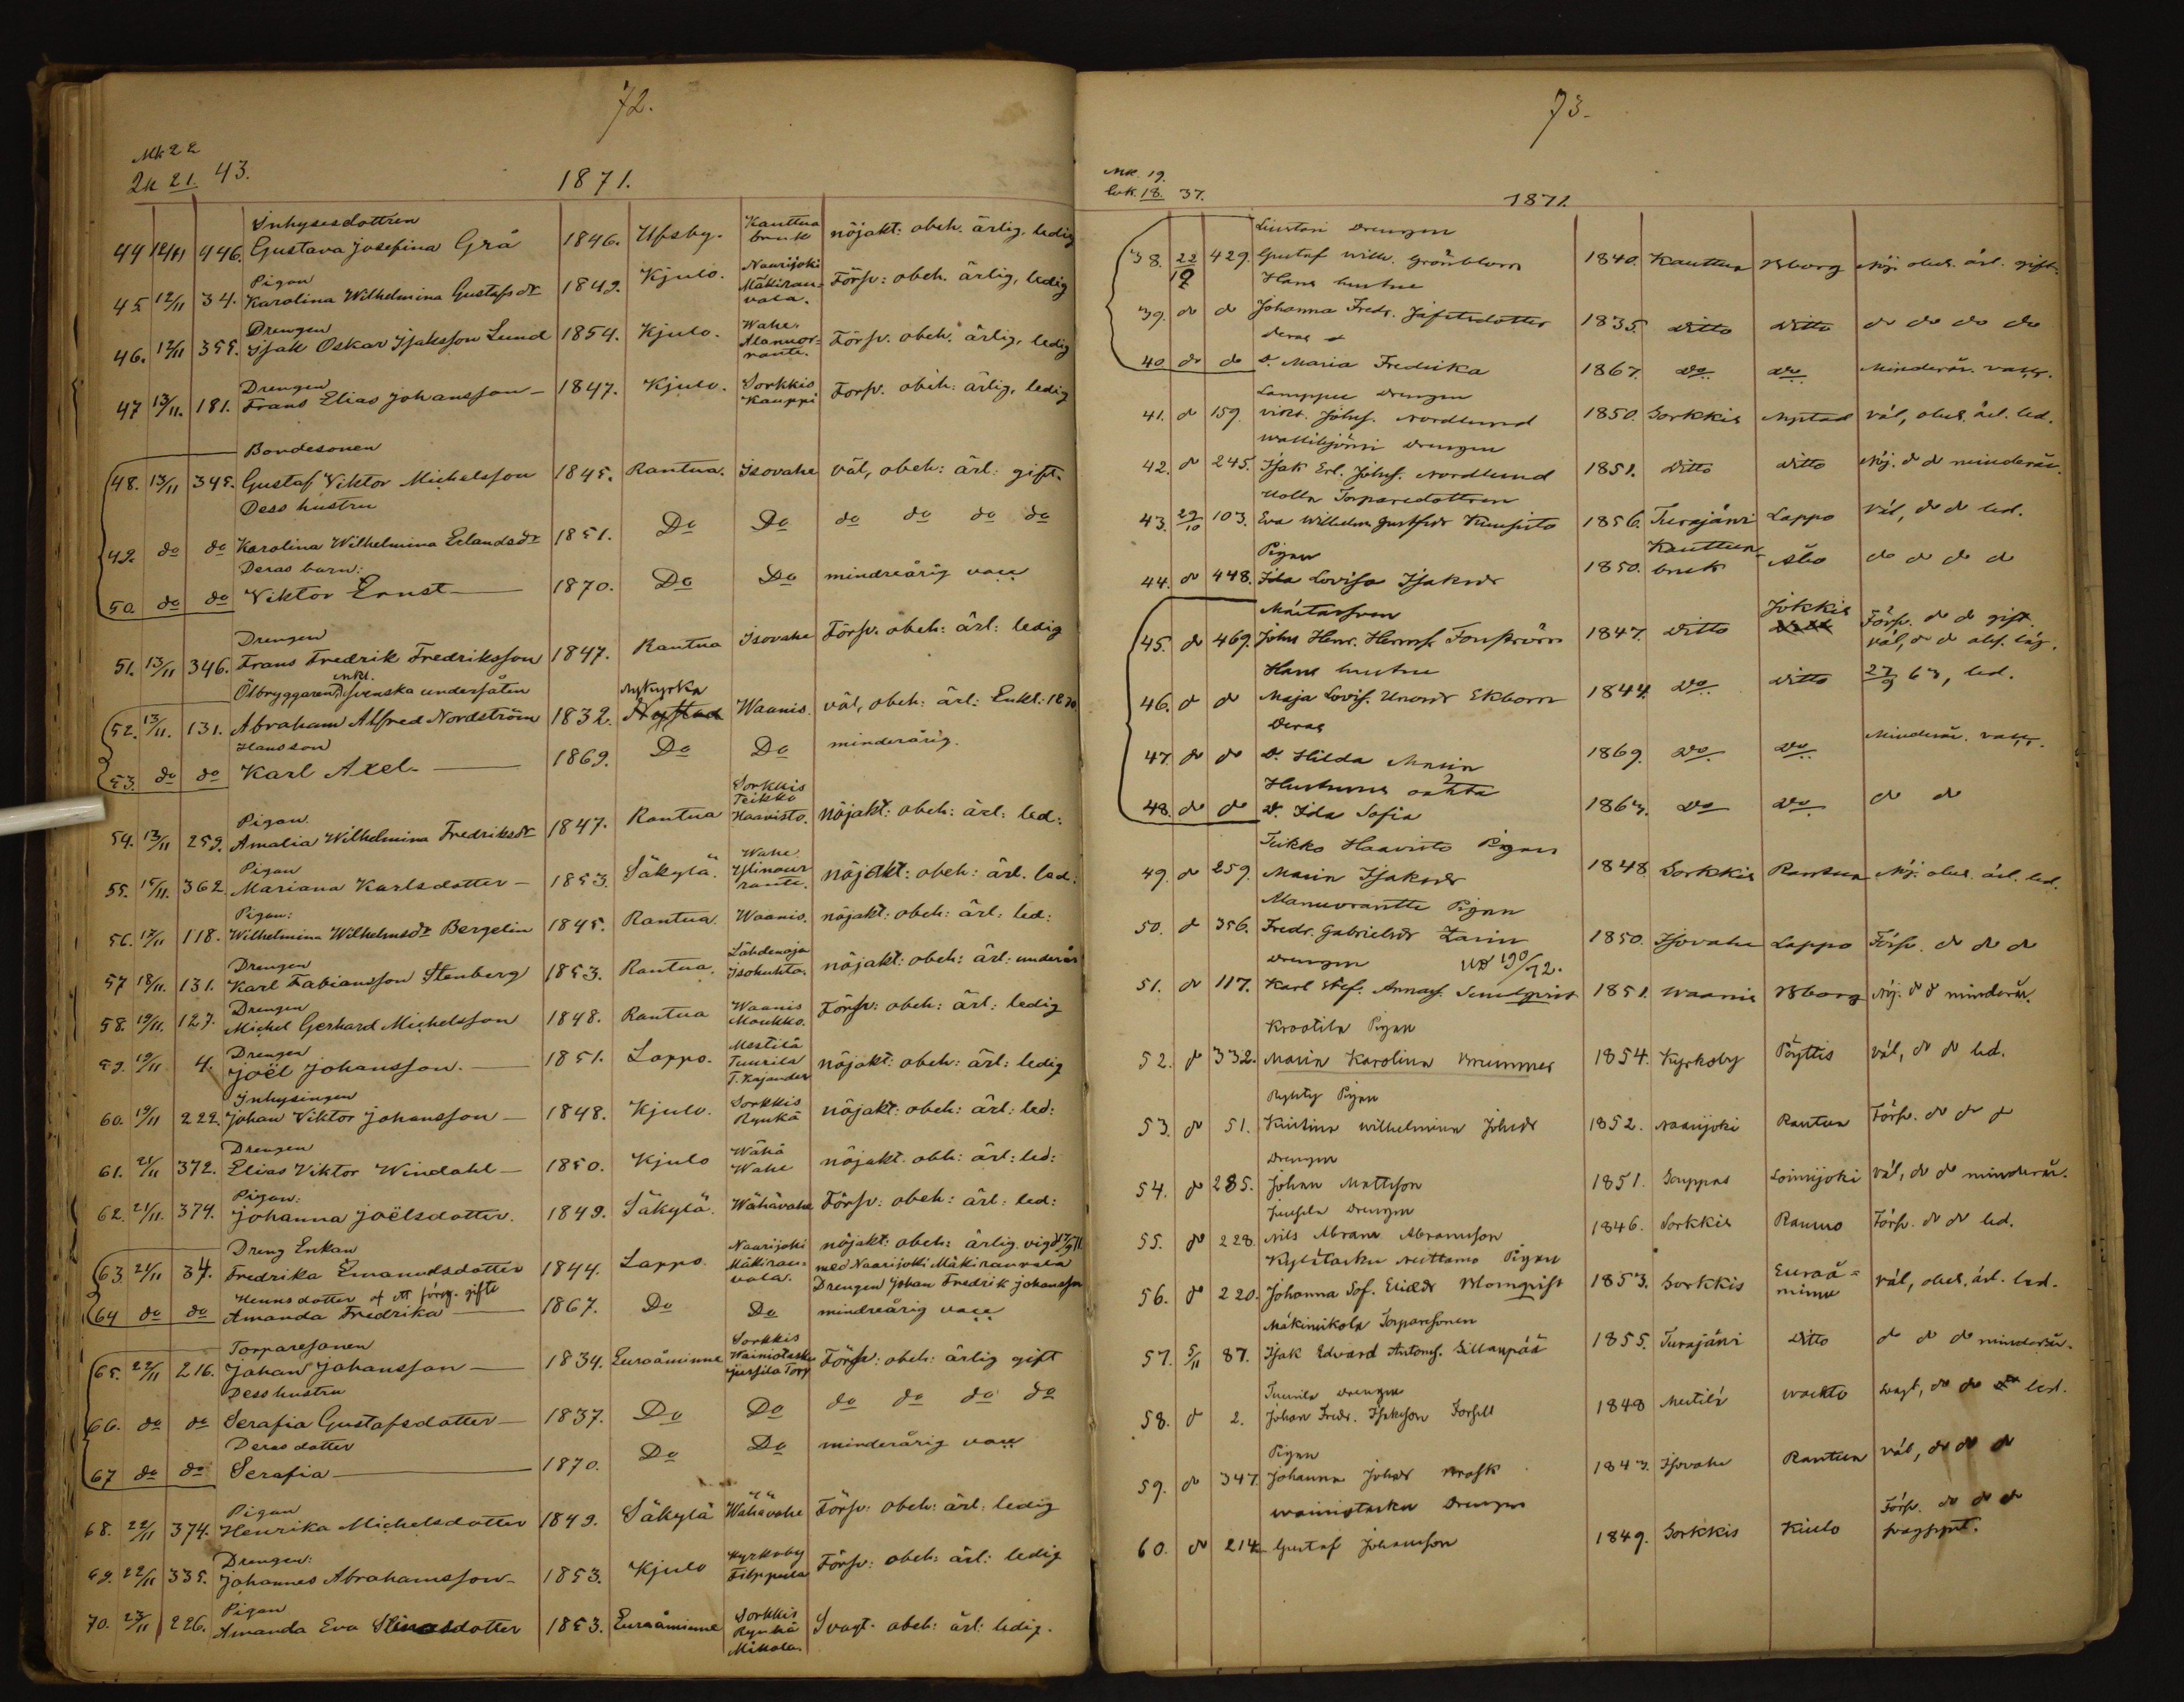 72.
Mk 22
2k 21. 43.
1871.
Inhysesdottren
44 12/11 446. Gustava Josefina Grå 1846. Ulfsby. Kauttua bruk nöjakt: obeh. ärlig, ledig
Pigan
45 12/11 34. Karolina Wilhelmina Gustafsdr 1849. Kjulo. Naarijoki Mäkirauvola. Försv: obeh. ärlig, ledig
Drengen
46. 12/11 355. Isak Oskar Isaksson Lund 1854. Kjulo. Wahe. Alanuorrante. Försv. obeh. ärlig, ledig
Drengen
47 13/11. 181. Frans Elias Johansson 1847. Kjulo. Sorkkis Kauppi Försv. obeh: ärlig, ledig
Bondesonen
48. 13/11 345. Gustaf Viktor Michelsson 1845. Rantua. Isovahe väl, obeh: ärl: gift.
Dess hustru
49. do do Karolina Wilhelmina Erlandsdr 1851. Do Do do do do do
Deras barn:
50. do do Viktor Ernst 1870. Do Do mindreårig vacc
Drengen
51. 13/11 346. Frans Fredrik Fredriksson 1847. Rantua Isovahe Försv. obeh: ärl: ledig
Ölbryggaren, enkl. svenska undersåten
52. 13/11. 131. Abraham Alfred Nordström 1832. Nykyrka Nystad Waanis. väl, obeh: ärl: Enkl: 1870
Hans son
53. do do Karl Axel 1869. Do Do minderårig.
Pigan
54. 13/11 259. Amalia Wilhelmina Fredriksdr 1847. Rantua Sorkkis Teikko Haavisto. nöjakt: obeh: ärl: led:
Pigan
55. 15/11. 362. Mariana Karlsdotter 1853. Säkylä. Wahe nöjakt: obeh: ärl. led:
Pigan:
56. 17/11 118. Wilhelmina Wilhelmsdr Bergelin 1845. Rantua. Waanis. nöjakt: obeh: ärl: led:
Drengen
57 18/11. 131. Karl Fabiansson Stenberg 1853. Rantua. Lähdenoja Isokuhta. nöjakt: obeh: ärl: underår
Drengen
58. 19/11. 127. Michel Gerhard Michelsson 1848. Rantua Waanis Moukko. Försv: obeh: ärl: ledig
Drengen
59. 19/11 4. Joël Johansson. 1851. Lappo. Mestilä Tuurila T. Kajander nöjakt: obeh: ärl: ledig
Inhysingen
60. 19/11 222. Johan Viktor Johansson 1848. Kjulo. Sorkkis Rynkä nöjakt: obeh: ärl: led:
Drengen
61. 21/11 372. Elias Viktor Windahl 1850. Kjulo Wähä Wahe nöjakt. obh: ärl: led:
Pigan:
62. 21/11. 374. Johanna Joëlsdotter. 1849. Säkylä. Wähävahe Försv: obeh: ärl: led:
Dreng Enkan
63. 21/11 34. Fredrika Emanuelsdotter 1844. Lappo. Naarijoki Mäkirauvola. nöjakt: obeh: ärlig. vigd med Naarijoki Mäkirauvola Drengen Johan Fredrik Johansson
Hennes dotter af ett föreg. gifte
64 do do Amanda Fredrika 1867. Do Do mindreårig vacc
Torparesonen
65. 22/11 216. Johan Johansson 1834. Euraåminne Sorkkis Wainiotaska Jussila Torp Försv: obeh: ärlig gift
Dess hustru
66. do do Serafia Gustafsdotter 1837. Do Do do do do do
Deras dotter
67 do do Serafia 1870. Do Do minderårig vacc
Pigan
68. 22/11 374. Henrika Michelsdotter 1849. Säkylä Wähävahe Försv: obeh: ärl: ledig
Drengen:
69. 22/11 335. Johannes Abrahamsson 1853. Kjulo Kyrkoby Filppula Försv: obeh: ärl: ledig
Pigan
70. 23/11 226. Amanda Eva dotter 1853. Euraåminne Sorkkis Rynkä Mikola. Svagt. obeh: ärl: ledig.
73.
Mk. 19.
Qvk. 18. 37.
1871.
Drengen
38. 22/10 429. Gustaf Wilh. Grönblom 1840. Kauttua Nöj. obeh. ärl. gift.
Hans hustru
39. do do Johanna Fredr. Jafetsdotter 1835. Ditto Ditto do do do do
Deras
40. do do D. Maria Fredrika 1867. Do Do Minderår. vacc.
Lamppu Drengen
41. do 159. Vikt. Johss. Nordlund 1850. Sorkkis Nystad Väl, obeh. ärl. led.
Drengen
42. do 245. Isak Erl. Johss. Nordlund 1851. Ditto Ditto Nöj. do do minderår.
Uolla Torparedottren
43. 29/10 103. Eva Wilhelm. Gustfsdr Kuusisto 1856. Turajärvi Lappo Väl, do do led.
Pigan
44. do 448. Ida Lovisa Isaksdr 1850. Kauttua bruk Åbo do do do do
45. do 469. Johs Henr. Hermss. Fonström 1847. Ditto Jokkis Försv. do do gift.
Hans hustru
46. do do Maja Lovis. Ekbom 1844. Do Ditto väl, do do led.
Deras
47. do do D. Hilda Maria 1869. Do Do Minderår. vacc.
Hustruns oäkta
48. do do D. Ida Sofia 1867. Do Do do do
Teikko Haavisto Pigan
49. do 259. Maria Isaksdr 1848. Sorkkis Rantua Nöj. obeh. ärl. led.
Alanuorantte Pigan
50. do 356. Fredr. Gabrielsdr Zarin 1850. Isovahe Lappo Försv. do do do
Drengen
51. do 117. Karl Stef. Sundqvist 1851. Waanis Nöj. do do minderår.
Krootila Pigan
52. do 332. Maria Karolina Brummer 1854. Kyrkoby Pöyttis väl, do do led.
Pigan
53. do 51. Kristina Wilhelmina Johsdr 1852. Naarijoki Rantua Försv. do do do
Drengen
54. do 285. Johan Mattsson 1851. Loimijoki väl, do do minderår.
Jussila Drengen
55. do 228. Nils Abram Abramsson 1846. Sorkkis Raumo Försv. do do led.
Pigan
56. do 220. Johanna Sof. Blomqvist 1853. Sorkkis Euraåminne väl, obeh. ärl. led.
Mäkimikola Torparesonen
57. 5/11 87. Isak Edvard Antonss. Sillanpää 1855. Turajärvi Ditto do do do minderår.
Tuurila Drengen
58. do 2. Johan Fredr. Isaksson Forsell 1848 Mestilä svagt, do do led.
Pigan
59. do 347. Johanna Johsdr 1843. Isovahe Rantua väl, do do do
Wainiotaska Drengen
60. do 214 Gustaf Johansson 1849. Sorkkis Kiulo Försv. do do do